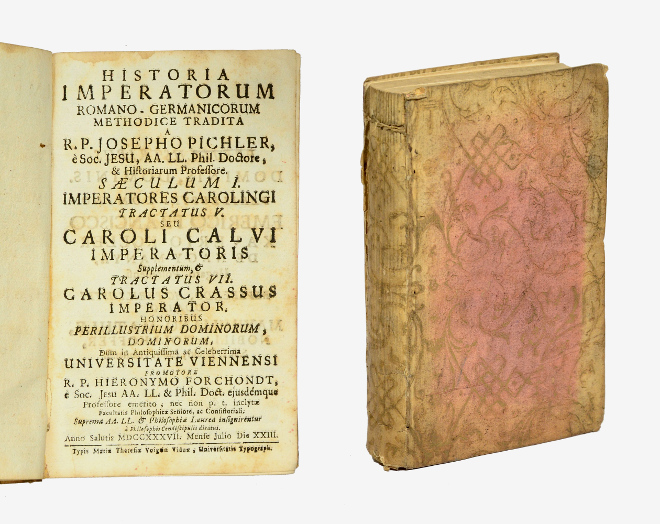 HISTORIA
IMPERATORUM
ROMANO-GERMANICORUM
METHODICE TRADITA
A
R. P. JOSEPHO PICHLER,
è Soc. JESU, AA. LL. Phil. Doctore,
& Historiarum Professore.
SÆCULUM I.
IMPERATORES CAROLINGI
TRACTATUS V.
SEU
CAROLI CALVI
IMPERATORIS
Supplementum, &
TRACTATUS VII.
CAROLUS CRASSUS
IMPERATOR.
HONORIBUS
PERILLUSTRIUM DOMINORUM,
DOMINORUM,
Dum in Antiquissima ac Celeberrima
UNIVERSITATE VIENNENSI
PROMOTORE
R. P. HIERONYMO FORCHONDT,
è Soc. Jesu AA. LL. & Phil. Doct. ejusdémque
Professore emerito, nec non p. t. inclytæ
Facultatis Philosophicæ Seniore, ac Consistoriali.
Suprema AA. LL. & Philosophiæ Laurea insignirentur
à Philosophis Condiscipulis dicatus.
Anno Salutis MDCCXXXVII. Mense Julio Die XXIII.
Typis Mariæ Theresiæ Voigtin Viduæ, Universitatis Typograph.